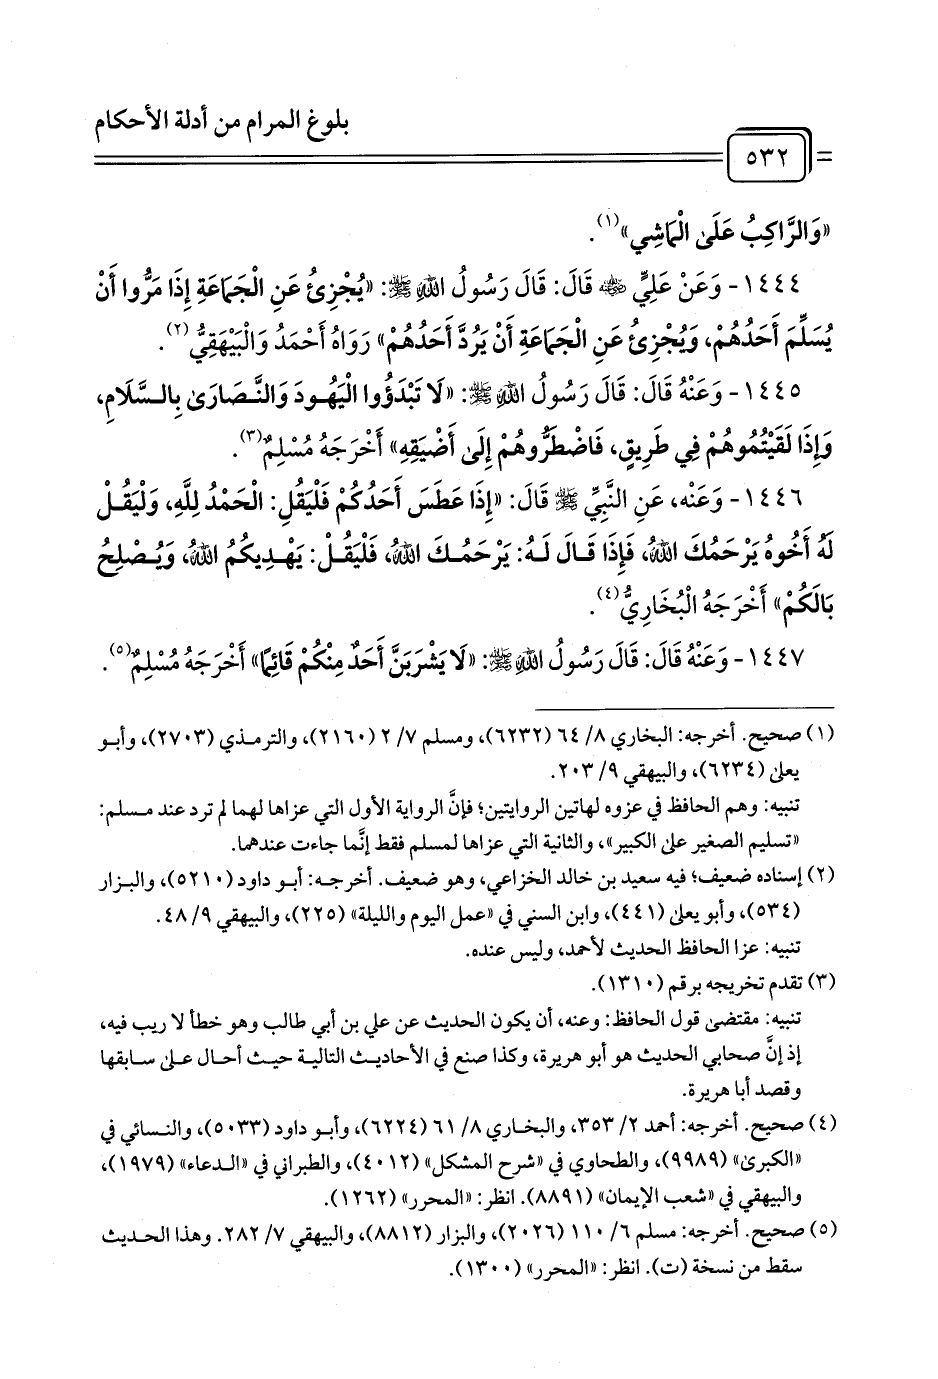 بلوغ المرام من أدلة الأحكام
٥٣٢
«وَالرَّاكِبُ عَلَى الْمَاشِي»(١).
١٤٤٤- وَعَنْ عَلِيٍّ ﵁ قَالَ: قَالَ رَسُولُ اللهِ ﷺ: «يُجْزِئُ عَنِ الْجَمَاعَةِ إِذَا مَرُّوا أَنْ
يُسَلِّمَ أَحَدُهُمْ، وَيُجْزِئُ عَنِ الْجَمَاعَةِ أَنْ يَرُدَّ أَحَدُهُمْ» رَوَاهُ أَحْمَدُ وَالْبَيْهَقِيُّ(٢).
١٤٤٥- وَعَنْهُ قَالَ: قَالَ رَسُولُ اللهِ ﷺ: «لَا تَبْدَؤُوا الْيَهُودَ وَالنَّصَارَى بِالسَّلَامِ،
وَإِذَا لَقَيْتُمُوهُمْ فِي طَرِيقٍ، فَاضْطَرُّوهُمْ إِلَى أَضْيَقِهِ» أَخْرَجَهُ مُسْلِمٌ(٣).
١٤٤٦- وَعَنْه، عَنِ النَّبِيِّ ﷺ قَالَ: «إِذَا عَطَسَ أَحَدُكُمْ فَلْيَقُلِ: الْحَمْدُ لِلَّهِ، وَلْيَقُلْ
لَهُ أَخُوهُ يَرْحَمُكَ اللهُ، فَإِذَا قَالَ لَهُ: يَرْحَمُكَ اللهُ، فَلْيَقُلْ: يَهْدِيكُمُ اللهُ، وَيُصْلِحُ
بَالَكُمْ» أَخْرَجَهُ الْبُخَارِيُّ(٤).
١٤٤٧- وَعَنْهُ قَالَ: قَالَ رَسُولُ اللهِ ﷺ: «لَا يَشْرَبَنَّ أَحَدٌ مِنْكُمْ قَائِمًا» أَخْرَجَهُ مُسْلِمٌ(٥).
(١) صحيح. أخرجه: البخاري ٨/ ٦٤ (٦٢٣٢)، ومسلم ٧/ ٢ (٢١٦٠)، والترمذي (٢٧٠٣)، وأبو
يعلى (٦٢٣٤)، والبيهقي ٩/ ٢٠٣.
تنبيه: وهم الحافظ في عزوه لهاتين الروايتين؛ فإنَّ الرواية الأول التي عزاها لهما لم ترد عند مسلم:
«تسليم الصغير على الكبير»، والثانية التي عزاها لمسلم فقط إنَّما جاءت عندهما.
(٢) إسناده ضعيف؛ فيه سعيد بن خالد الخزاعي، وهو ضعيف. أخرجه: أبو داود (٥٢١٠)، والبزار
(٥٣٤)، وأبو يعلى (٤٤١)، وابن السني في «عمل اليوم والليلة» (٢٢٥)، والبيهقي ٩/ ٤٨.
تنبيه: عزا الحافظ الحديث لأحمد، وليس عنده.
(٣) تقدم تخريجه برقم (١٣١٠).
تنبيه: مقتضى قول الحافظ: وعنه، أن يكون الحديث عن علي بن أبي طالب وهو خطأ لا ريب فيه،
إذ إنَّ صحابي الحديث هو أبو هريرة، وكذا صنع في الأحاديث التالية حيث أحال على سابقها
وقصد أبا هريرة.
(٤) صحيح. أخرجه: أحمد ٢/ ٣٥٣، والبخاري ٨/ ٦١ (٦٢٢٤)، وأبو داود (٥٠٣٣)، والنسائي في
«الكبرى» (٩٩٨٩)، والطحاوي في «شرح المشكل» (٤٠١٢)، والطبراني في «الدعاء» (١٩٧٩)،
والبيهقي في «شعب الإيمان» (٨٨٩١). انظر: «المحرر» (١٢٦٢).
(٥) صحيح. أخرجه: مسلم ٦/ ١١٠ (٢٠٢٦)، والبزار (٨٨١٢)، والبيهقي ٧/ ٢٨٢. وهذا الحديث
سقط من نسخة (ت). انظر: «المحرر» (١٣٠٠).